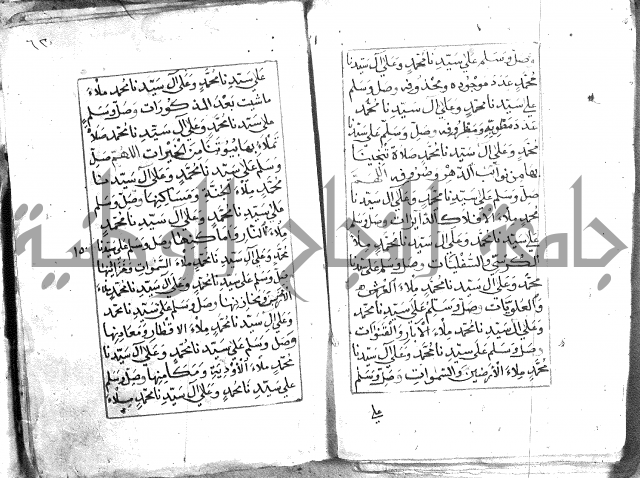 وصل وسلم على سيدنا محمد وعلى آل سيدنا
محمد عدد موجوده ومحذوفه وصل وسلم
على سيدنا محمد وعلى آل سيدنا محمد
عدد مظلوبه ومظروفه وصل وسلم على سيدنا
محمد وعلى آل سيدنا محمد صلاة تنجينا
بها من نوائب الدهر وصروفه اللهم
صل وسلم على سيدنا محمد وعلى آل سيدنا
محمد ملاء الافلاك الدائرات وصل وسلم
على سيدنا محمد وعلى آل سيدنا محمد ملاء
والسفليات وصل وسلم على سيدنا
محمد وعلى آل سيدنا محمد ملاء العرش
والعلويات وصل وسلم على سيدنا محمد
وعلى آل سيدنا محمد ملاء
وصل وسلم على سيدنا محمد وعلى آل سيدنا
محمد ملاء الارضين والسموات وصل وسلم
على
٦٢
على سيدنا محمد وعلى آل سيدنا محمد ملاء
ماشئت بعد المذكورات وصل وسلم
على سيدنا محمد وعلى آل سيدنا محمد صلاة
تملاء بها بيوتنا من الخيرات اللهم صل
وسلم على سيدنا محمد وعلى آل سيدنا
محمد ملاء الجنة ومساكنها وصل وسلم
على سيدنا محمد وعلى آل سيدنا محمد
ملاء النار واماكنها وصل وسلم على سيدنا
محمد وعلى آل سيدنا محمد ملاء السموات
وصل وسلم على سيدنا محمد وعلى آل سيدنا محمد ملاء
الارض ومخازنها وصل وسلم على سيدنا محمد
وعلى آل سيدنا محمد ملاء الاقطار ومعادنها
وصل وسلم على سيدنا محمد وعلى آل سيدنا
محمد ملاء الاودية ومكامنها وصل وسلم
على سيدنا محمد وعلى آل سيدنا محمد ملاء
جامعة النجاح الوطنية